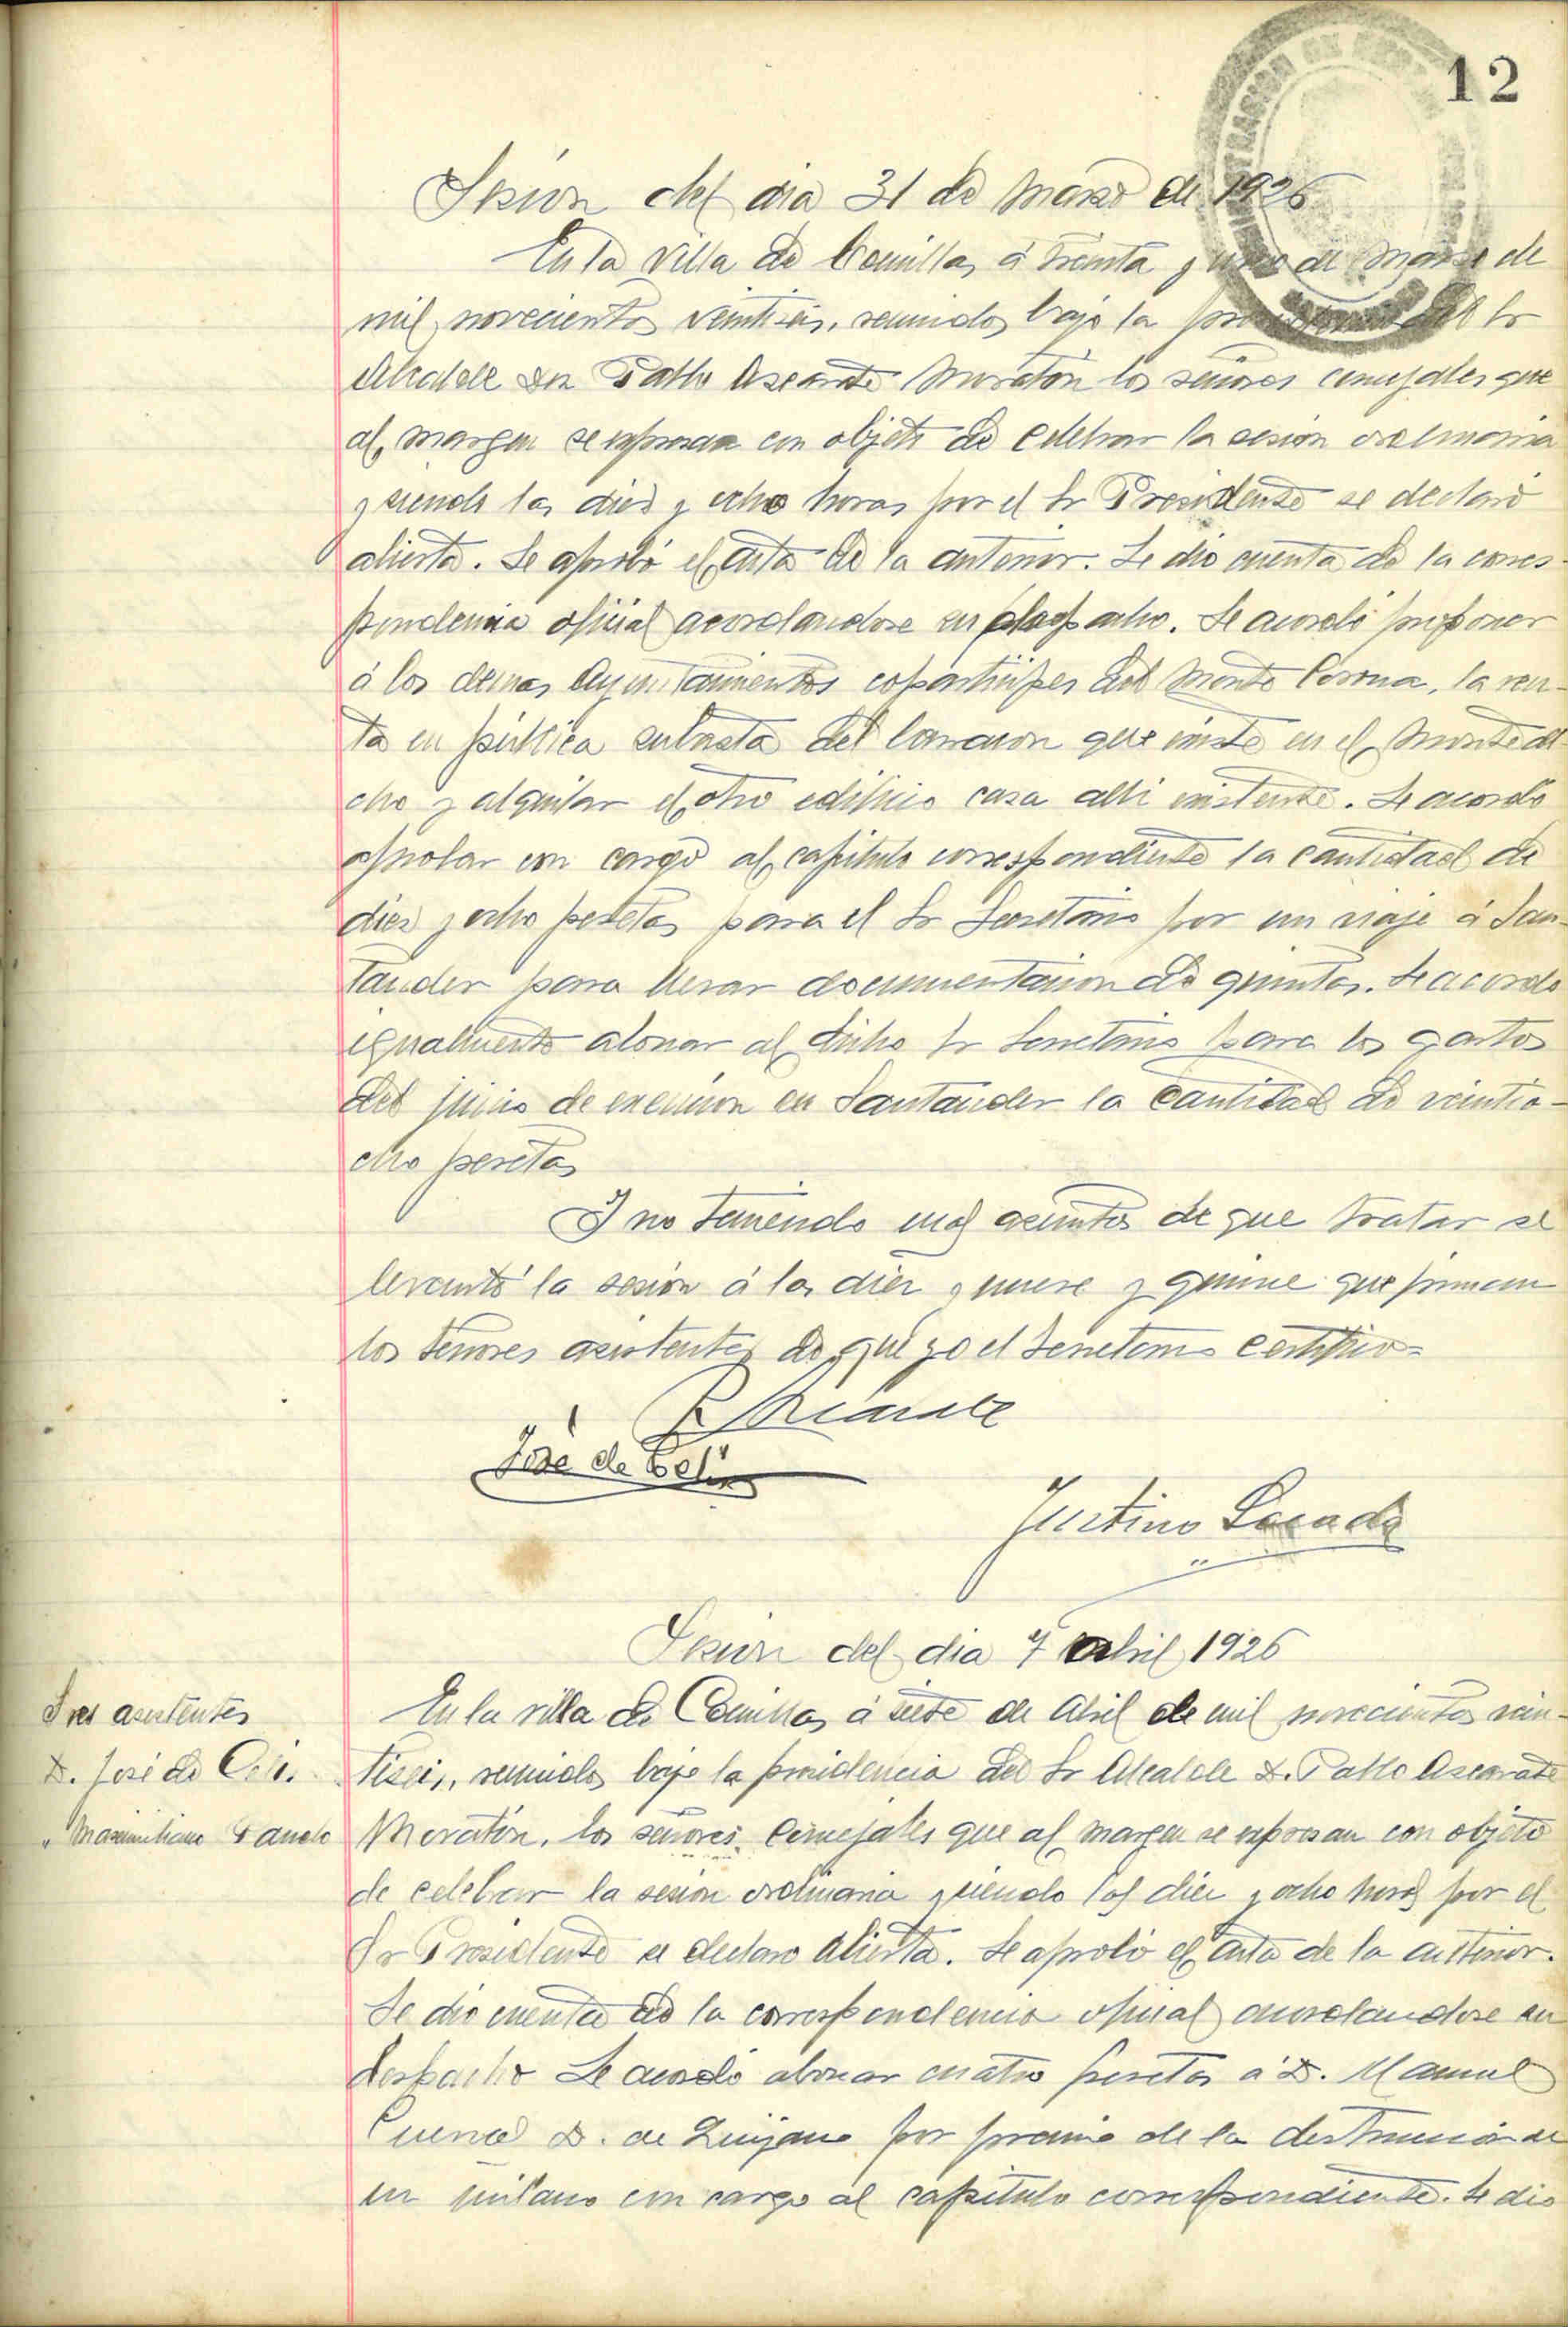 12
Sesion del dia 31 de Marzo de 1926
En la villa de Comillas á treinta y uno de Marzo de
mil novecientos veintiseis, reunidos bajo la presidencia del Sr
Alcalde Don Pablo Ascarate Moratón los señores concejales que
al margen se expresan con objeto de celebrar la sesion ordinaria
y siendo las diez y ocho horas por el Sr Presidente se declaró
abierta. Se aprobó el acta de la anterior. Se dio cuenta de la corres-
pondencia oficial acordandose su despacho. Se acordó proponer
á los demas Ayuntamientos copartícipes del Monte Corona, la ven-
ta en pública subasta del barracon que existe en el Monte di-
cho y alquilar el otro edificio casa alli existente. Se acordó
aprobar con cargo al capitulo correspondiente la cantidad de
diez y ocho pesetas para el Sr Secretario por un viaje á San-
tander para llevar documentacion de quintas. Se acordo
igualmente abonar al dicho Sr Secretario para los gastos
del juicio de exencion en Santander la cantidad de veintio-
cho pesetas
Y no teniendo mas asuntos de que tratar se
levantó la sesion á las diez y nueve y quince que firman
los señores asistentes de que yo el Secretario certifico=
P Ascarate
José de Celis
Justino Posada
Sesion del dia 7 abril 1926
Sres asistentes
D. José de Celis
" Maximiliano
En la villa de Comillas á siete de Abril de mil novecientos vein-
tiseis, reunidos bajo la presidencia del Sr Alcalde D. Pablo Ascarate
Moratón, los señores Concejales que al margen se expresan con objeto
de celebrar la sesion ordinaria y siendo las diez y ocho horas por el
Sr Presidente se declaro abierta. Se aprobó el acta de la anterior.
Se dio cuenta de la correspondencia oficial acordandose su
despacho Se acordó abonar cuatro pesetas á D. Manuel
D. de Quijano por premio de la destruccion de
un milano con cargo al capitulo correspondiente. Se dio